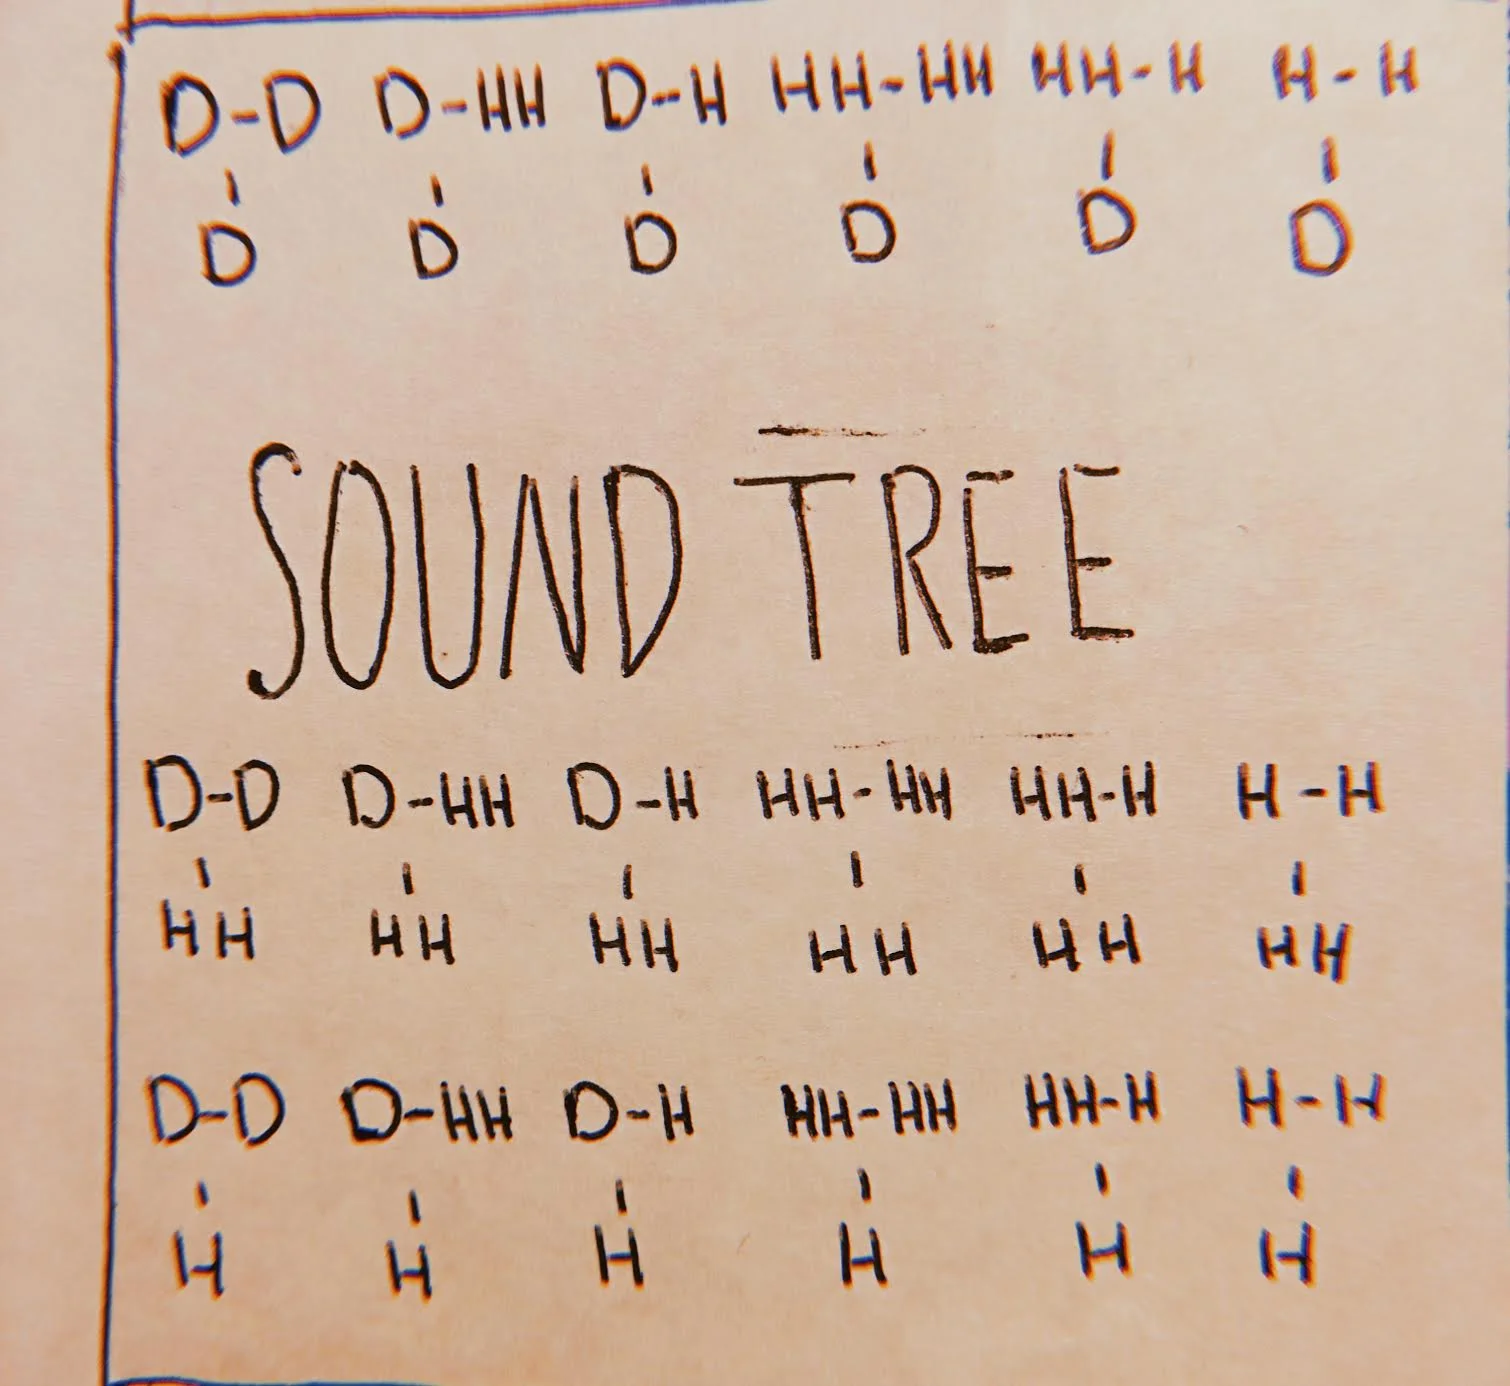 D-D D-HH D-H HH-HH HH-H H-H
D D D D D D
SOUND TREE
D-D D-HH D-H HH-HH HH-H H-H
HH HH HH HH HH HH
D-D D-HH D-H HH-HH HH-H H-H
H H H H H H